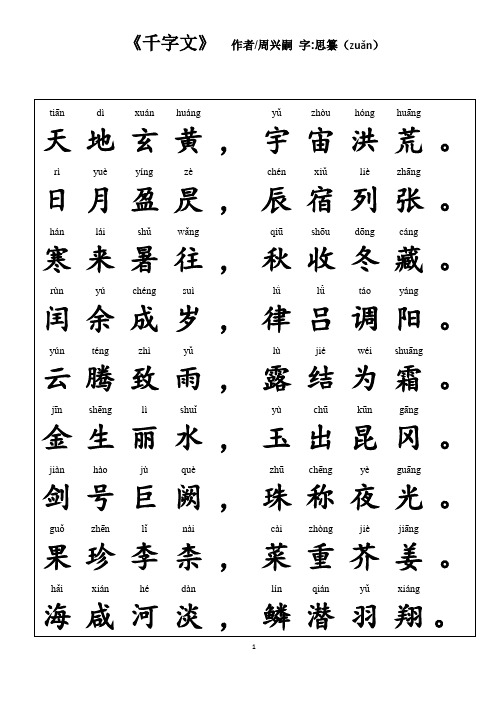 《千字文》 作者/周兴嗣 字:思纂（zuǎn）
tiān dì xuán huáng yǔ zhòu hóng huāng
天地玄黄，宇宙洪荒。
rì yuè yíng zè chén xiǔ liè zhāng
日月盈昃，辰宿列张。
hán lái shǔ wǎng qiū shōu dōng cáng
寒来暑往，秋收冬藏。
rùn yú chéng suì lǜ lǚ táo yáng
闰余成岁，律吕调阳。
yún téng zhì yǔ lù jié wéi shuāng
云腾致雨，露结为霜。
jīn shēng lì shuǐ yù chū kūn gāng
金生丽水，玉出昆冈。
jiàn hào jù què zhū chēng yè guāng
剑号巨阙，珠称夜光。
guǒ zhēn lǐ nài cài zhòng jiè jiāng
果珍李柰，菜重芥姜。
hǎi xián hé dàn lín qián yǔ xiáng
海咸河淡，鳞潜羽翔。
1